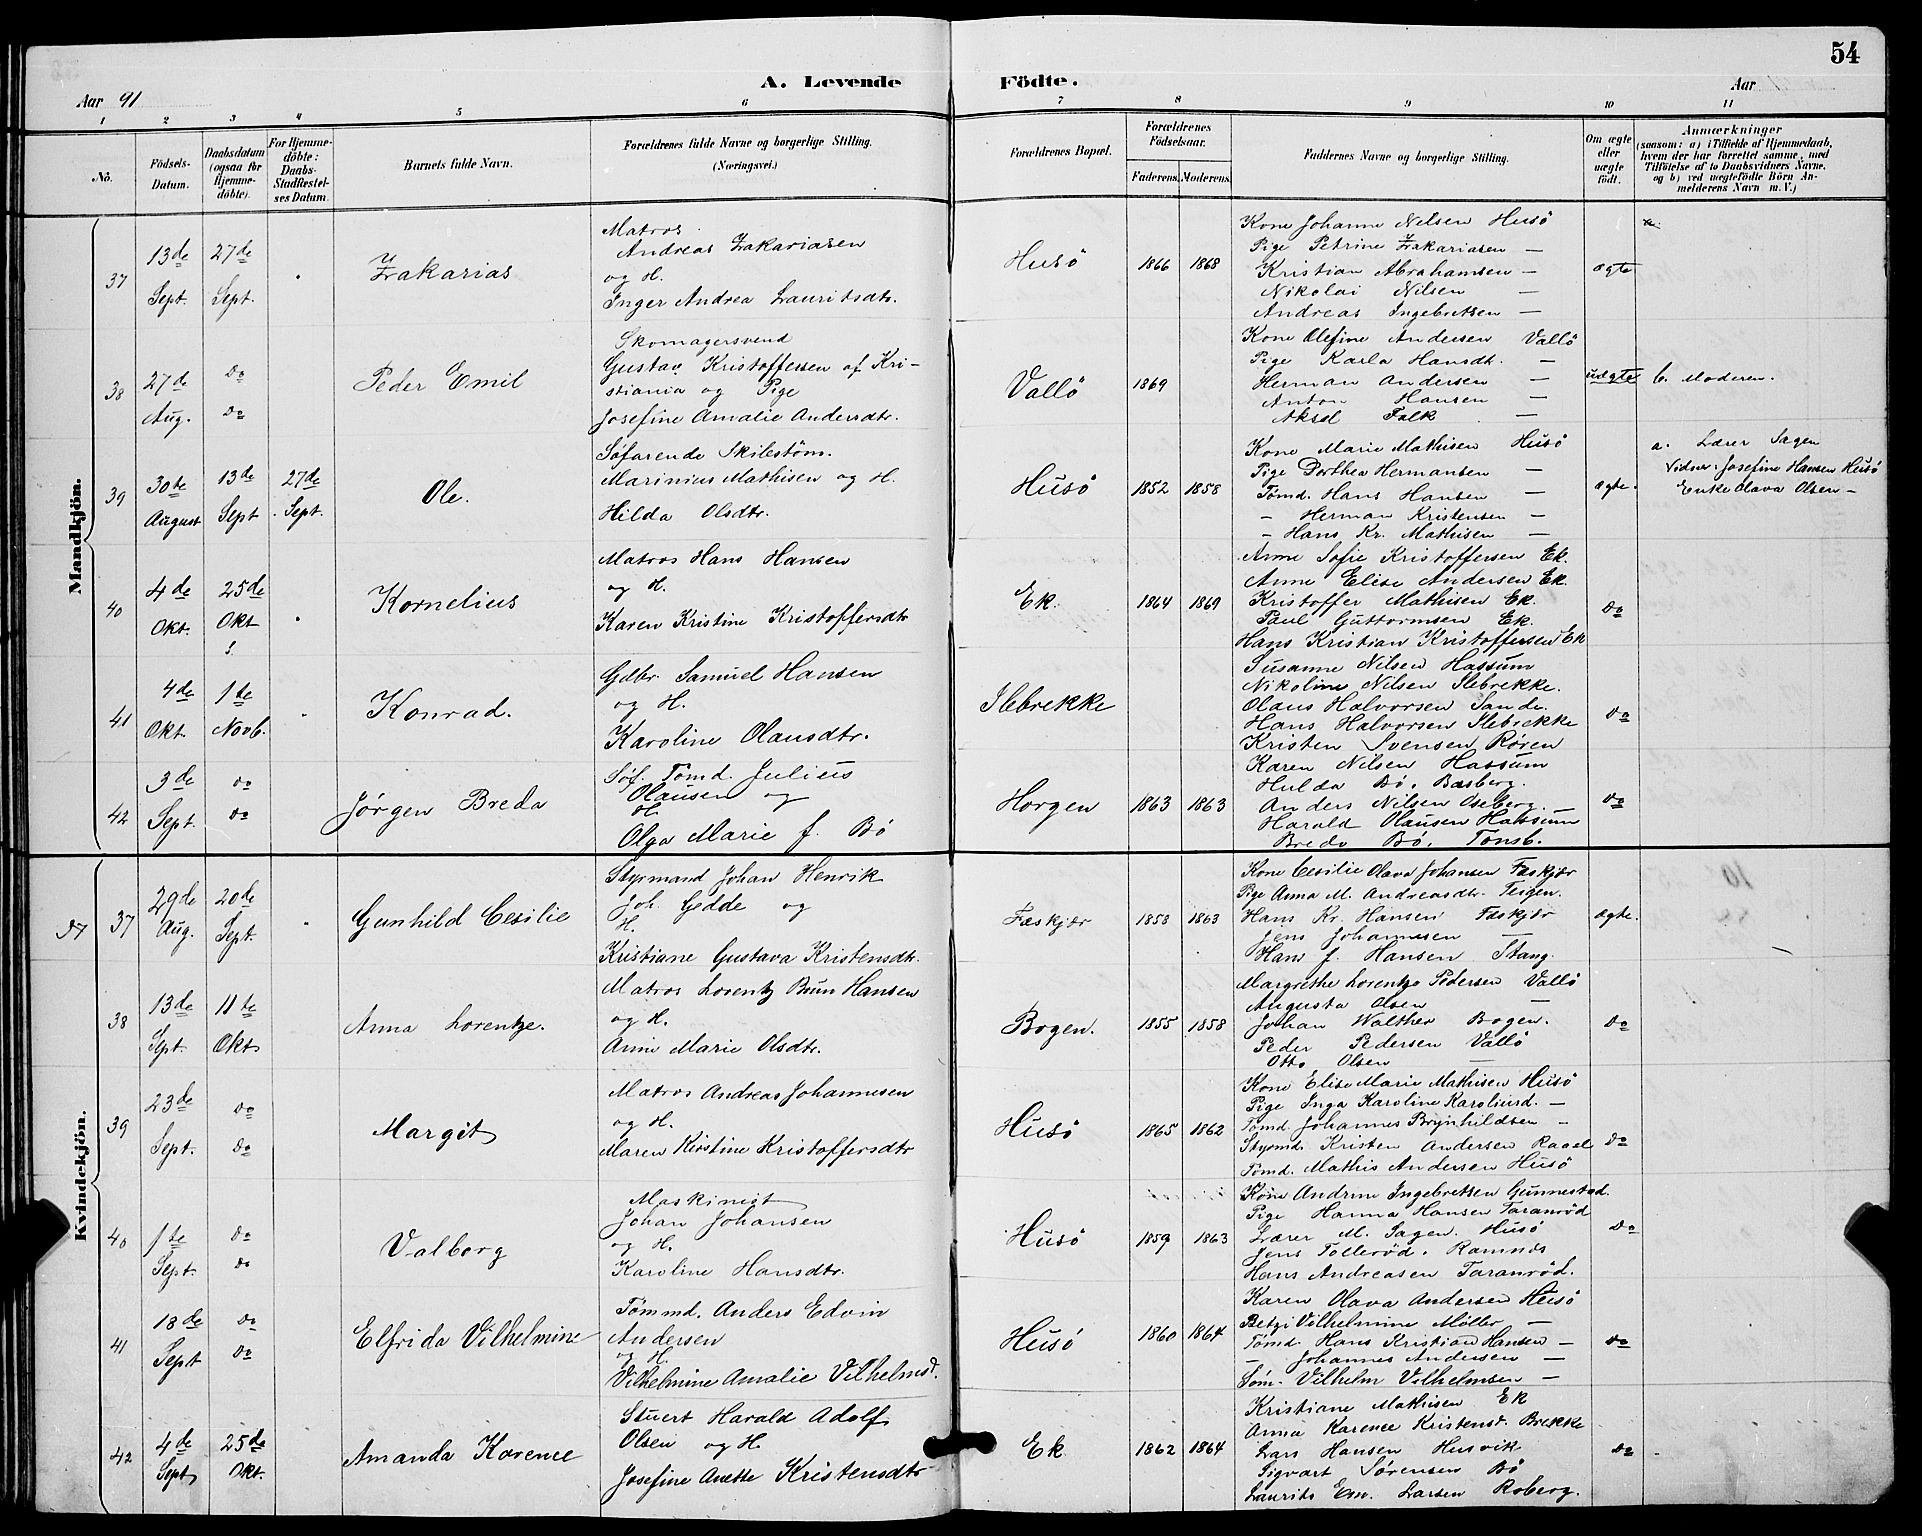 54
A. Levende Födte.
Aar 91
Aar
1 2 3 4 5 6 7 8 9 10 11
No.
Födsels-Datum.
Daabsdatum (ogsaa for Hjemme-döbte).
For Hjemme-döbte: Daabs-Stadfæstel-ses Datum.
Barnets fulde Navn.
Forældrenes fulde Navne og borgerlige Stilling. (Næringsvei.)
Forældrenes Bopæl.
Forældrenes Födselsaar.
Faderens. Moderens.
Faddernes Navne og borgerlige Stilling.
Om ægte eller uægte födt.
Anmærkninger
(saasom: a) i Tilfælde af Hjemmedaab,
hvem der har forrettet samme, med
Tilföielse af to Daabsvidners Navne,
og b) ved uægtefödte Börn An-
melderens Navn m. V.)
Mandkjön.
37
13de Sept.
27de Sept.
Zakarias
Matros
Andreas Zakariasen
og H.
Inger Andrea Lauritsdtr.
Husö
1866 1868
Kone Johanne Nilsen Husö
Pige Petrine Zakariasen —
Kristian Abrahamsen —
Nikolai Nilsen —
Andreas Ingebretsen —
ægte
38
27de Aug.
do do
Peder Emil
Skomagersvend
Gustav Kristoffersen af Kri-
stiania og Pige
Josefine Amalie Andersdtr.
Vallö
1869
Kone Olefine Andersen Vallö
Pige Karla Hansdt. —
Herman Andersen —
Anton Hansen —
Aksel Falk —
uægte
b. Moderen.
39
30te August
13de Sept
27de Sept.
Ole.
Søfarende Skibstöm.
Marinius Mathisen og H.
Hilda Olsdtr.
Husö
1852 1858
Kone Marie Mathisen Husö
Pige Dorthea Hermansen —
Tømd. Hans Hansen —
— Herman Kristensen —
— Hans Kr. Mathisen —
ægte.
a. Lærer Sagen
Vidner: Josefine Hansen Husö
Enke Olava Olsen —
40
4de Okt.
25de Okt
Kornelius
Matros Hans Hansen
og H.
Karen Kristine Kristoffersdtr
Ek.
1864 1869
Anne Sofie Kristoffersen Ek.
Anne Elise Andersen Ek.
Kristoffer Mathisen Ek.
Paul Guttormsen Ek.
Hans Kristian Kristoffersen Ek
do
41
4de Okt.
1te Novb.
Konrad.
Gdbr. Samuel Hansen
og H.
Karoline Olausdtr.
Ilebrekke
Susanne Nilsen Hassum
Nikoline Nilsen Ilebrekke.
Olaus Halvorsen Sande.
Hans Halvorsen Ilebrekke
Kristen Svensen Røren
do
42
3de Sept.
do do
Jørgen Breda
Søf. Tømd. Julius
Olausen og
H.
Olga Marie f. Bö
Horgen
1863 1863
Karen Nilsen Hassum
Hulda Bö, Basberg.
Anders Nilsen Oseberg. —
Harald Olausen Hassum
Breda Bö, Tønsb.
do
Kvindekjön.
37
29de Aug.
20de Sept.
Gunhild Cesilie
Styrmand Johan Henrik
Joh. Gedde og
H.
Kristiane Gustava Kristensdtr.
Fæskjær
1858 1863
Kone Cesilie Olava Johansen Fæskjær
Pige Anna M. Andreasdtr. Teigen.
Hans Kr. Hansen Fæskjær
Jens Johannesen —
Hans J. Hansen Stang.
ægte.
38
13de Sept.
11te Okt.
Anna Lorentze.
Matros Lorentz Brun Hansen
og H.
Anne Marie Olsdtr.
Bogen.
1855 1858
Margrethe Lorentze Pedersen Vallö
Augusta Olsen —
Johan Walther Bogen.
Peder Pedersen Vallö
Otto Olsen —
do
39
23de Sept.
do do
Margit
Matros Andreas Johannesen
og H.
Maren Kirstine Kristoffersdtr
Husö
1865 1862
Kone Elise Marie Mathisen Husö
Pige Inga Karoline Karoliusd. —
Tømd. Johannes Brynhildsen —
Styrmd. Kristen Andersen Raael
Tømd. Mathis Andersen Husö
do
40
1te Sept.
do do
Valborg
Maskinist
Johan Johansen
og H.
Karoline Hansdtr.
Husö
1859 1863
Kone Andrine Ingebretsen Gunnestad.
Pige Hanna Hansen Taranrød
Lærer M. Sagen. Husö
Jens Tollerød. Ramnes
Hans Andreasen Taranrød.
do
41
18de Sept
do do
Elfrida Vilhelmine
Tømmd. Anders Edvin
Andersen
og H.
Vilhelmine Amalie Vilhelmsd.
Husö
1860 1864
Karen Olava Andersen Husö
Betzi Vilhelmine Möller —
Tømd. Hans Kristian Hansen —
— Johannes Andersen —
Søm. Vilhelm Vilhelmsen —
do
42
4de Sept
25de Okt.
Amanda Karence
Stuert Harald Adolf
Olsen og H.
Josefine Anette Kristensdtr
Ek
1862 1864
Kristiane Mathisen Ek
Anna Karence Kristensd. Brekke
Lars Hansen Husvik
Sigvart Sørensen Bö
Laurits Em. Larsen Roberg.
do